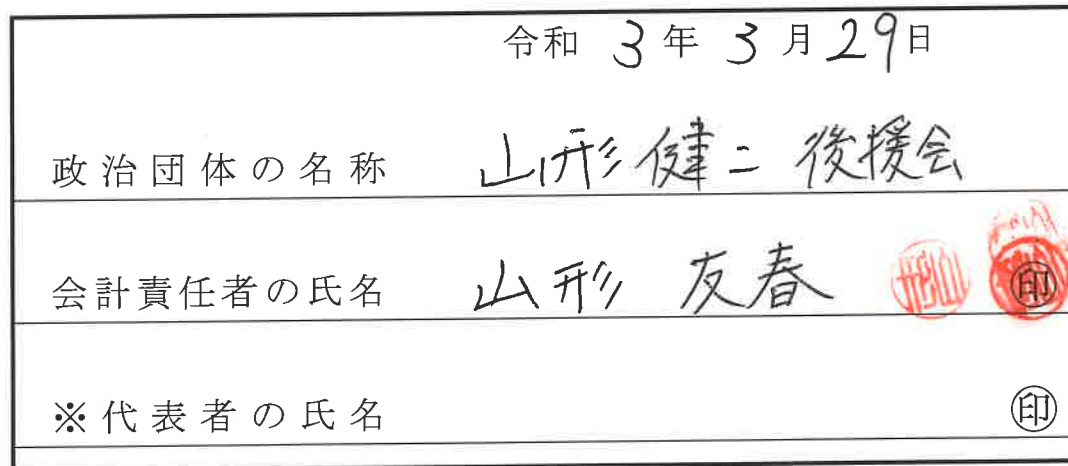 令和 3年 3月29日
政治団体の名称 山形健二後援会
会計責任者の氏名 山形 友春 印
※代表者の氏名 印